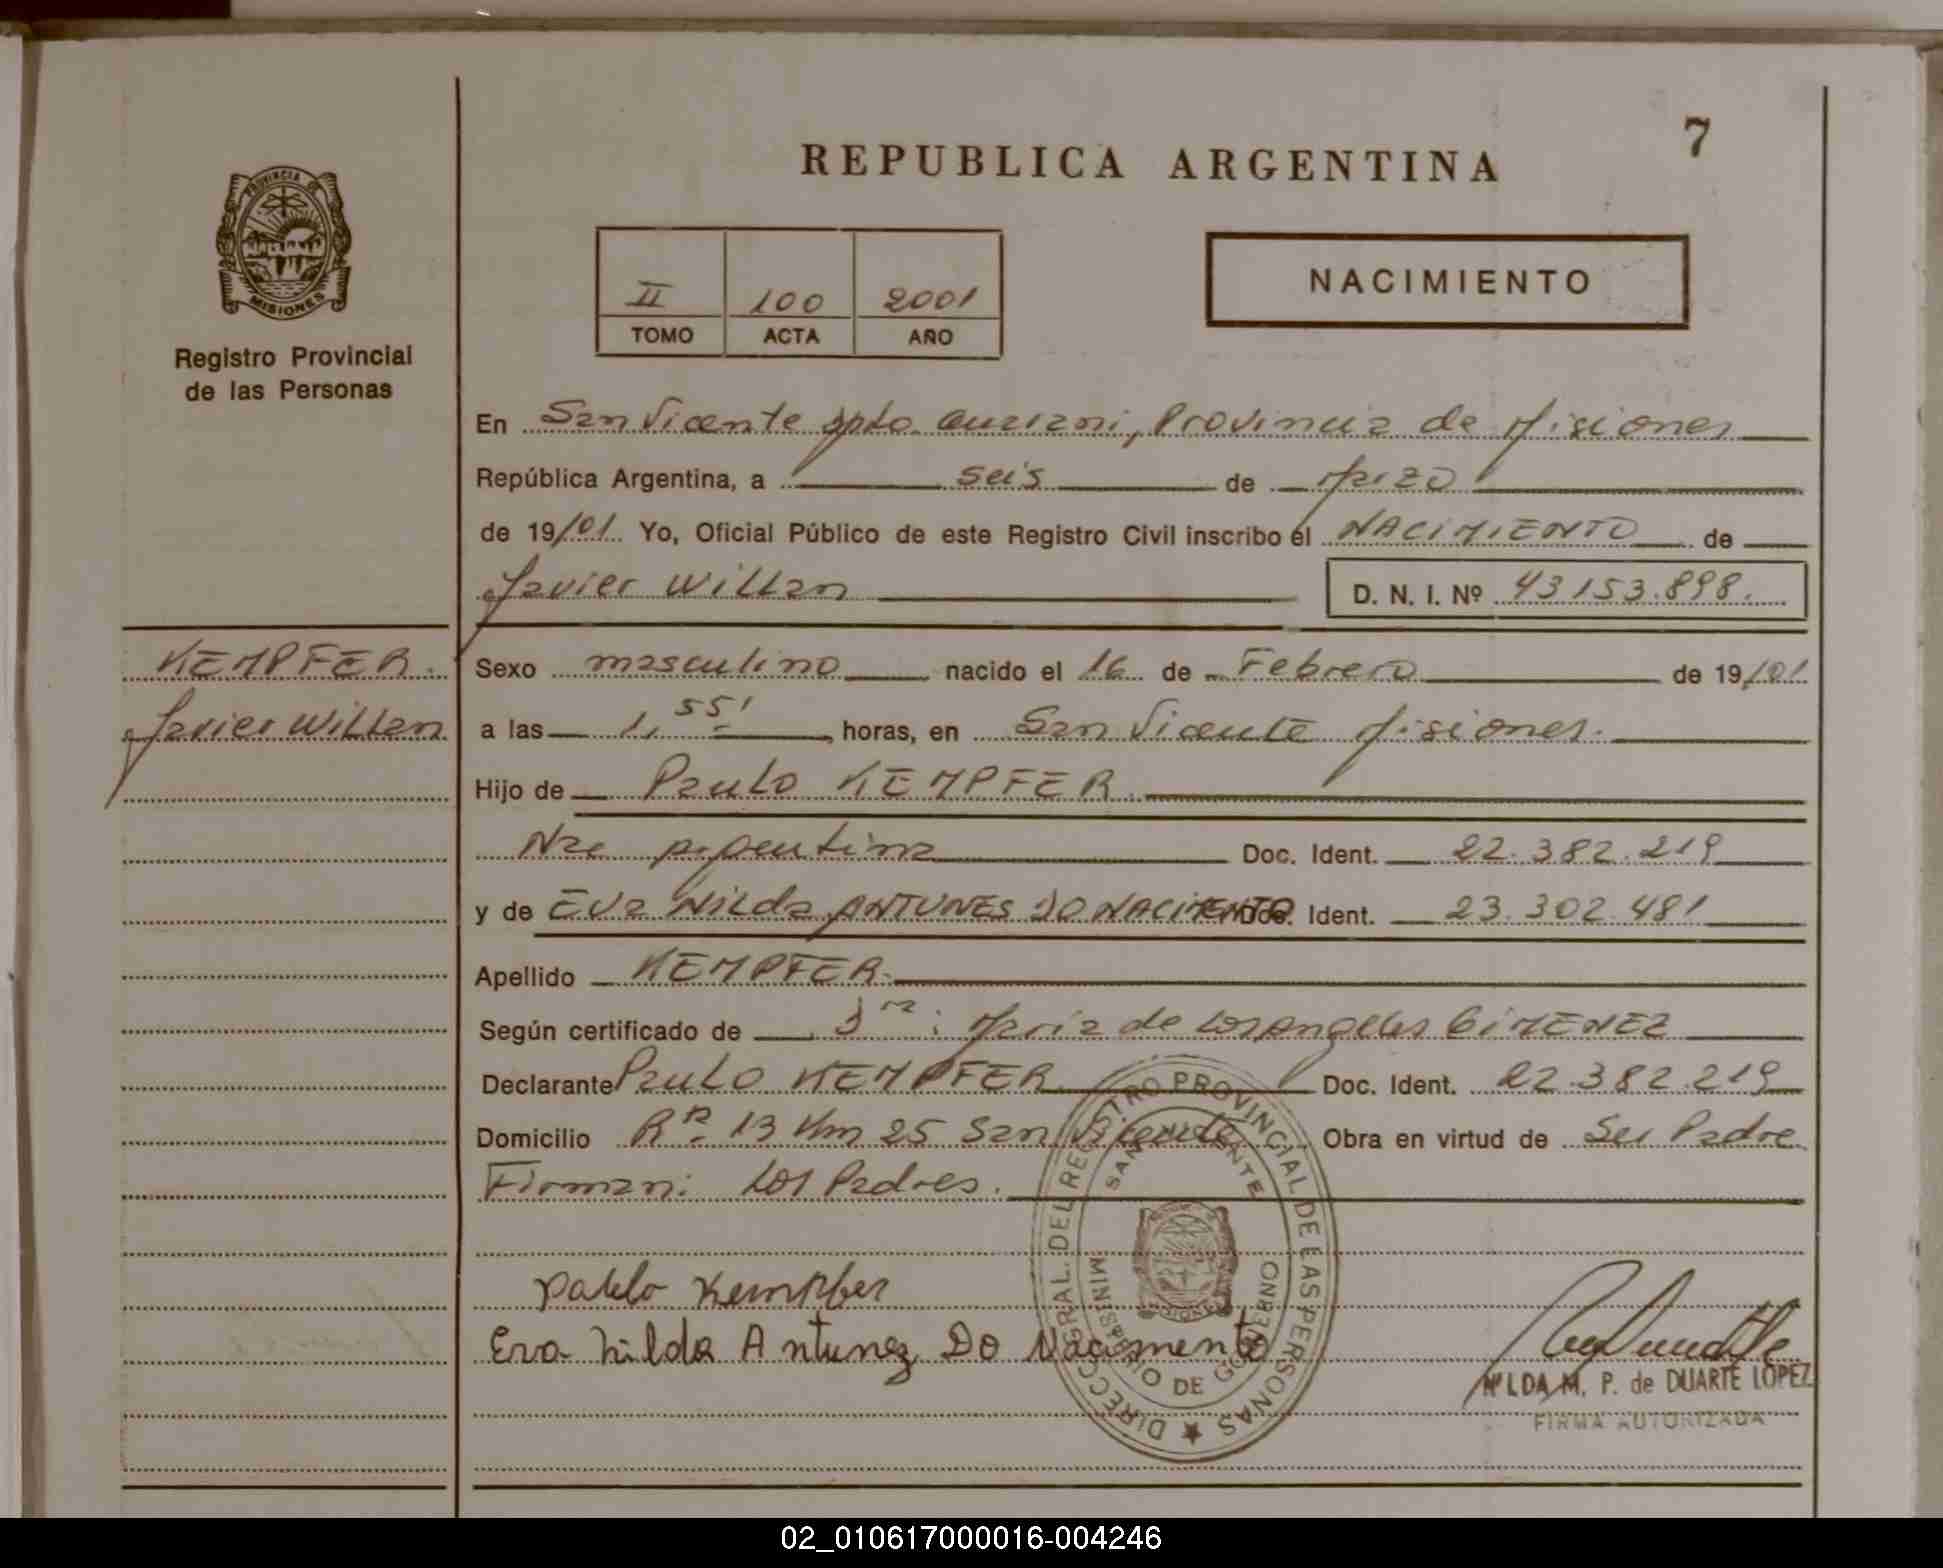 7
REPUBLICA ARGENTINA
PROVINCIA DE MISIONES
II 100 2001
TOMO ACTA AÑO
NACIMIENTO
Registro Provincial
de las Personas
En San Vicente Dpto Guarani, Provincia de Misiones
República Argentina, a seis de Marzo
de 19/01. Yo, Oficial Público de este Registro Civil inscribo el NACIMIENTO de
Javier Willan D. N. I. Nº 43.153.898.
KEMPFER.
Javier Willan
Sexo masculino nacido el 16 de Febrero de 19/01
a las 1,55' horas, en San Vicente Misiones.
Hijo de Paulo KEMPFER.
Nac Argentina Doc. Ident. 22.382.219
y de Eva Nilda ANTUNES DO NACIMENTO Doc. Ident. 23.302.481
Apellido KEMPFER.
Según certificado de Maria de Los Angeles GIMENEZ
Declarante Paulo KEMPFER Doc. Ident. 22.382.219
Domicilio 13 Km 25 San Vicente Obra en virtud de Ser Padre
Firman: Los Padres.
Pablo Kempfer
Eva Nilda Antunez Do Nacimento
DIRECC. GRAL. DEL REGISTRO PROVINCIAL DE LAS PERSONAS
SAN VICENTE
MINISTERIO DE GOBIERNO
NILDA M. P. de DUARTE LOPEZ
FIRMA AUTORIZADA
02_010617000016-004246